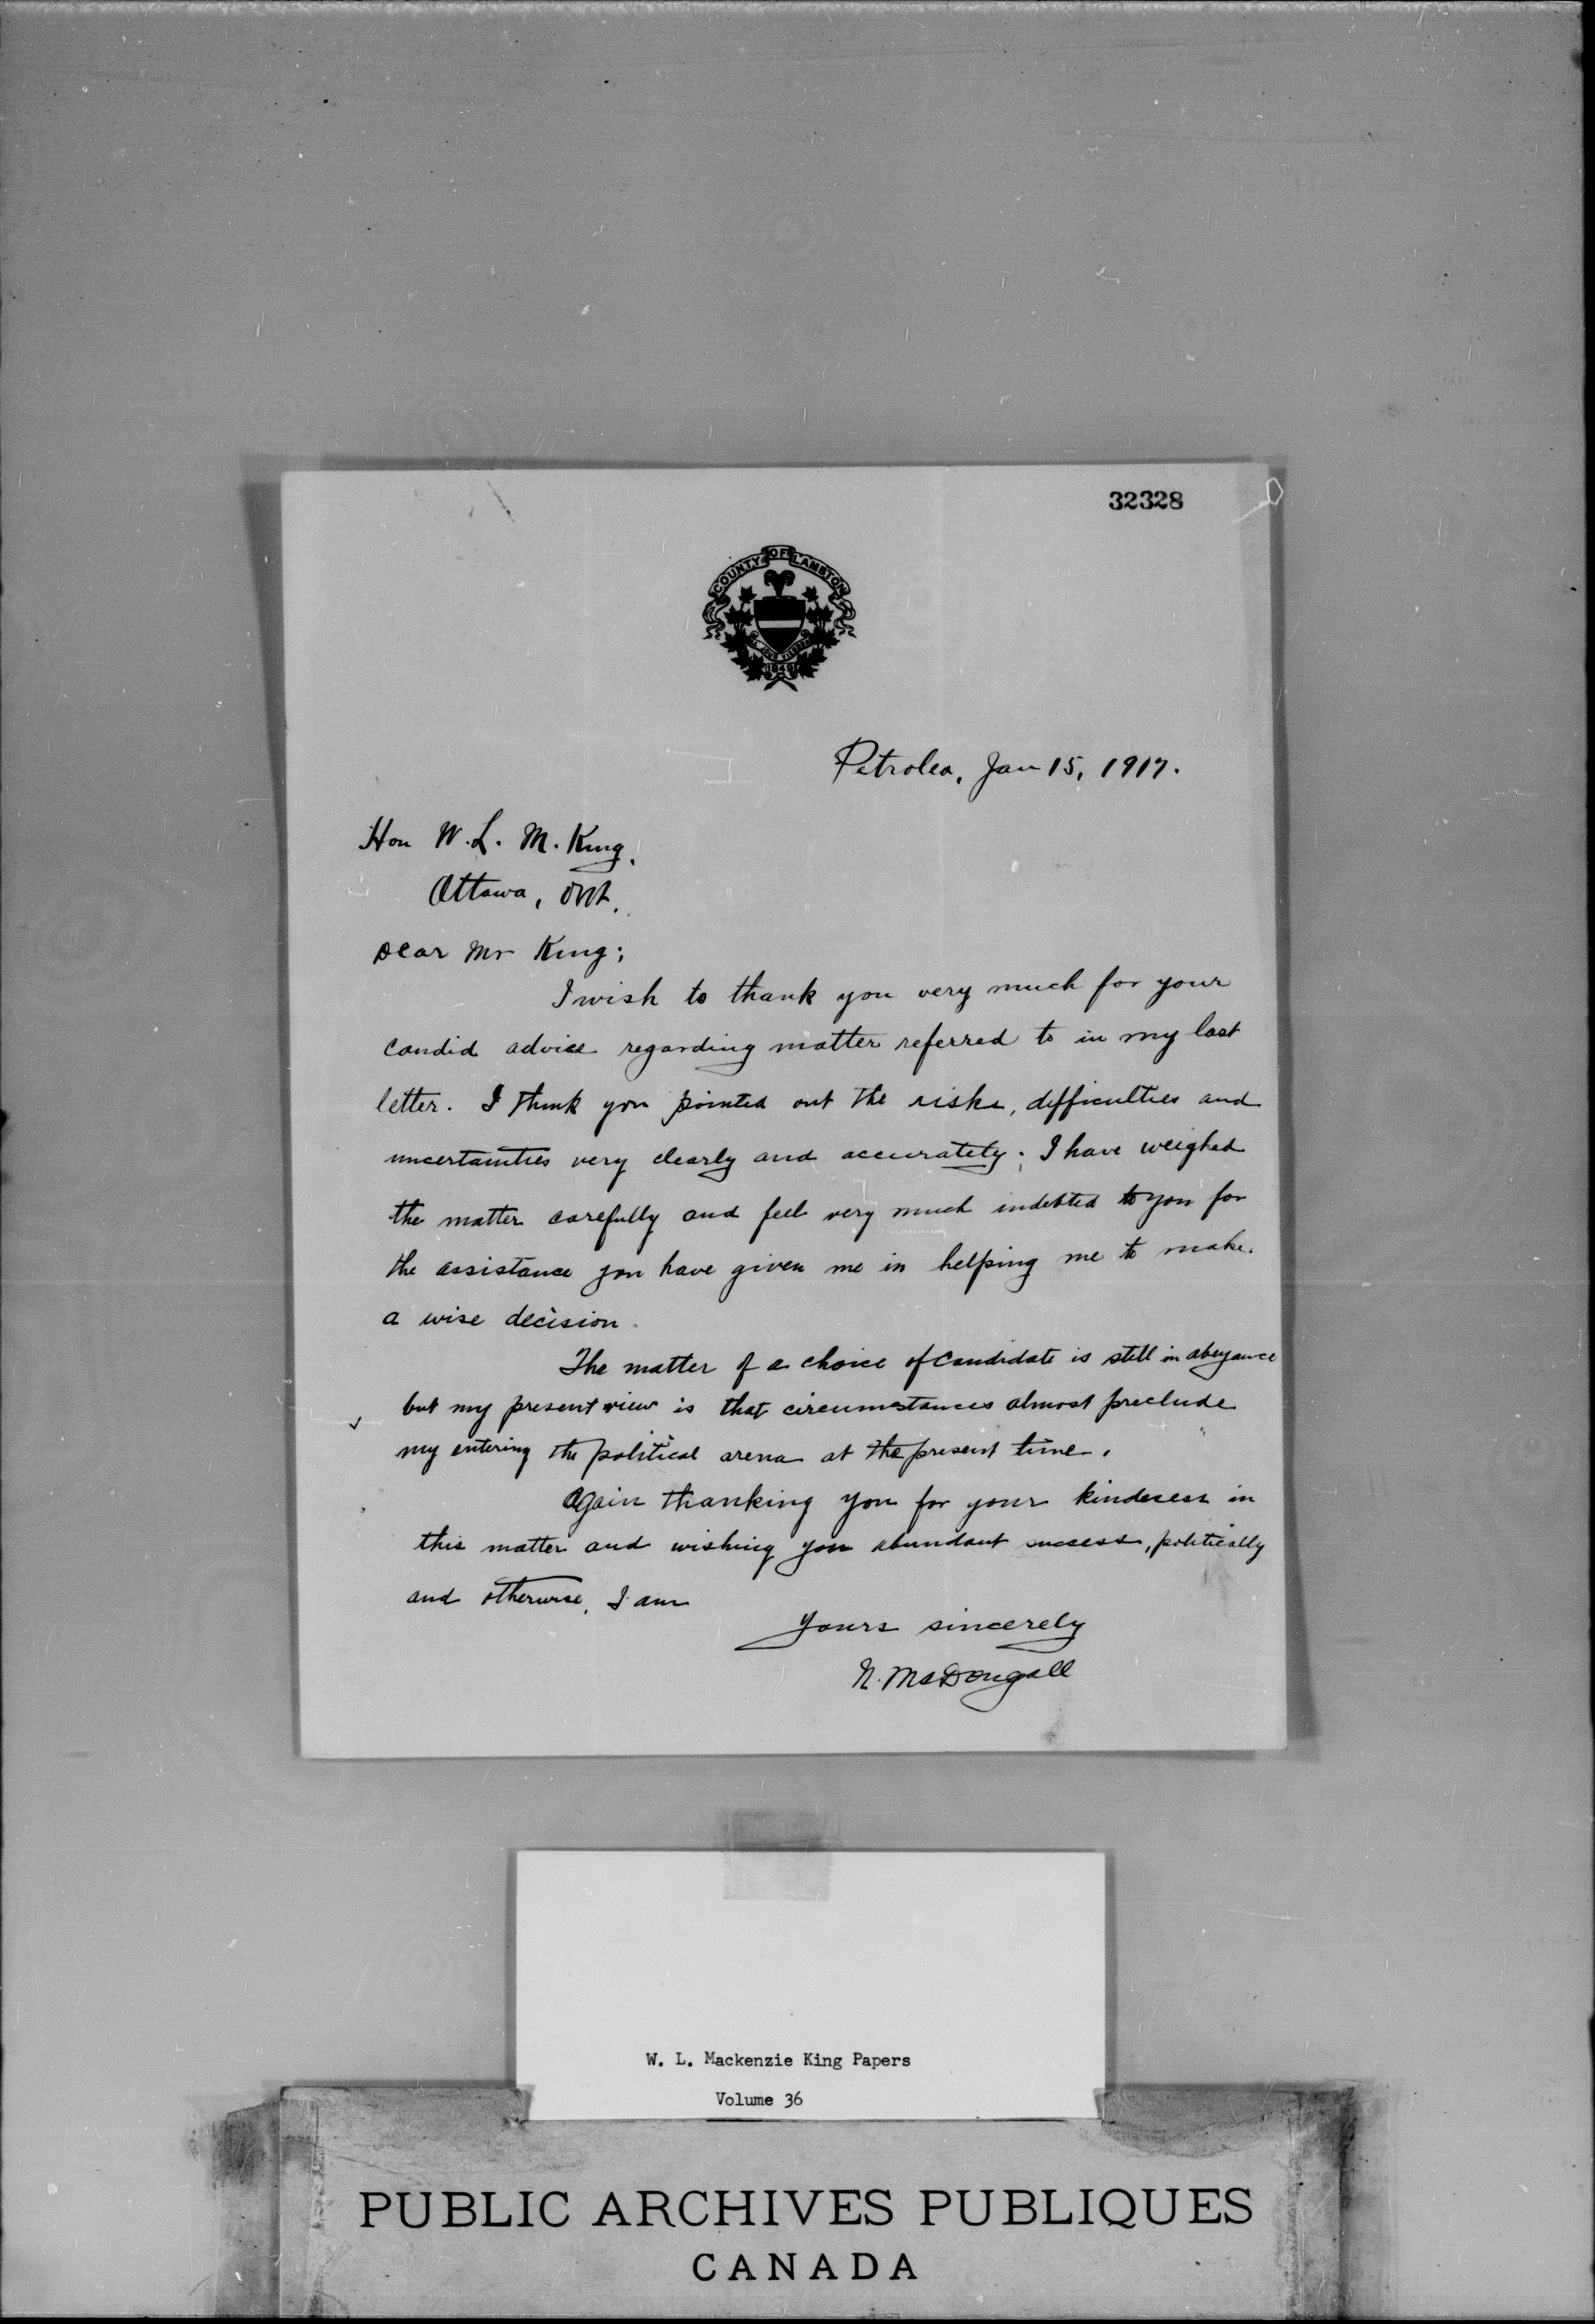 32328
COUNTY OF LAMBTON
1849
Petrolea, Jan 15, 1917.
Hon W. L. M. King,
Ottawa, Ont.
Dear Mr King;
I wish to thank you very much for your
candid advice regarding matter referred to in my last
letter. I think you pointed out the risks, difficulties and
uncertainties very clearly and accurately; I have weighed
the matter carefully and feel very much indebted to you for
the assistance you have given me in helping me to make
a wise decision.
The matter of a choice of candidate is still in abeyance
but my present view is that circumstances almost preclude
my entering the political arena at the present time.
Again thanking you for your kindness in
this matter and wishing you abundant success, politically
and otherwise, I am
Yours sincerely
N. McDougall
W. L. Mackenzie King Papers
Volume 36
PUBLIC ARCHIVES PUBLIQUES
CANADA